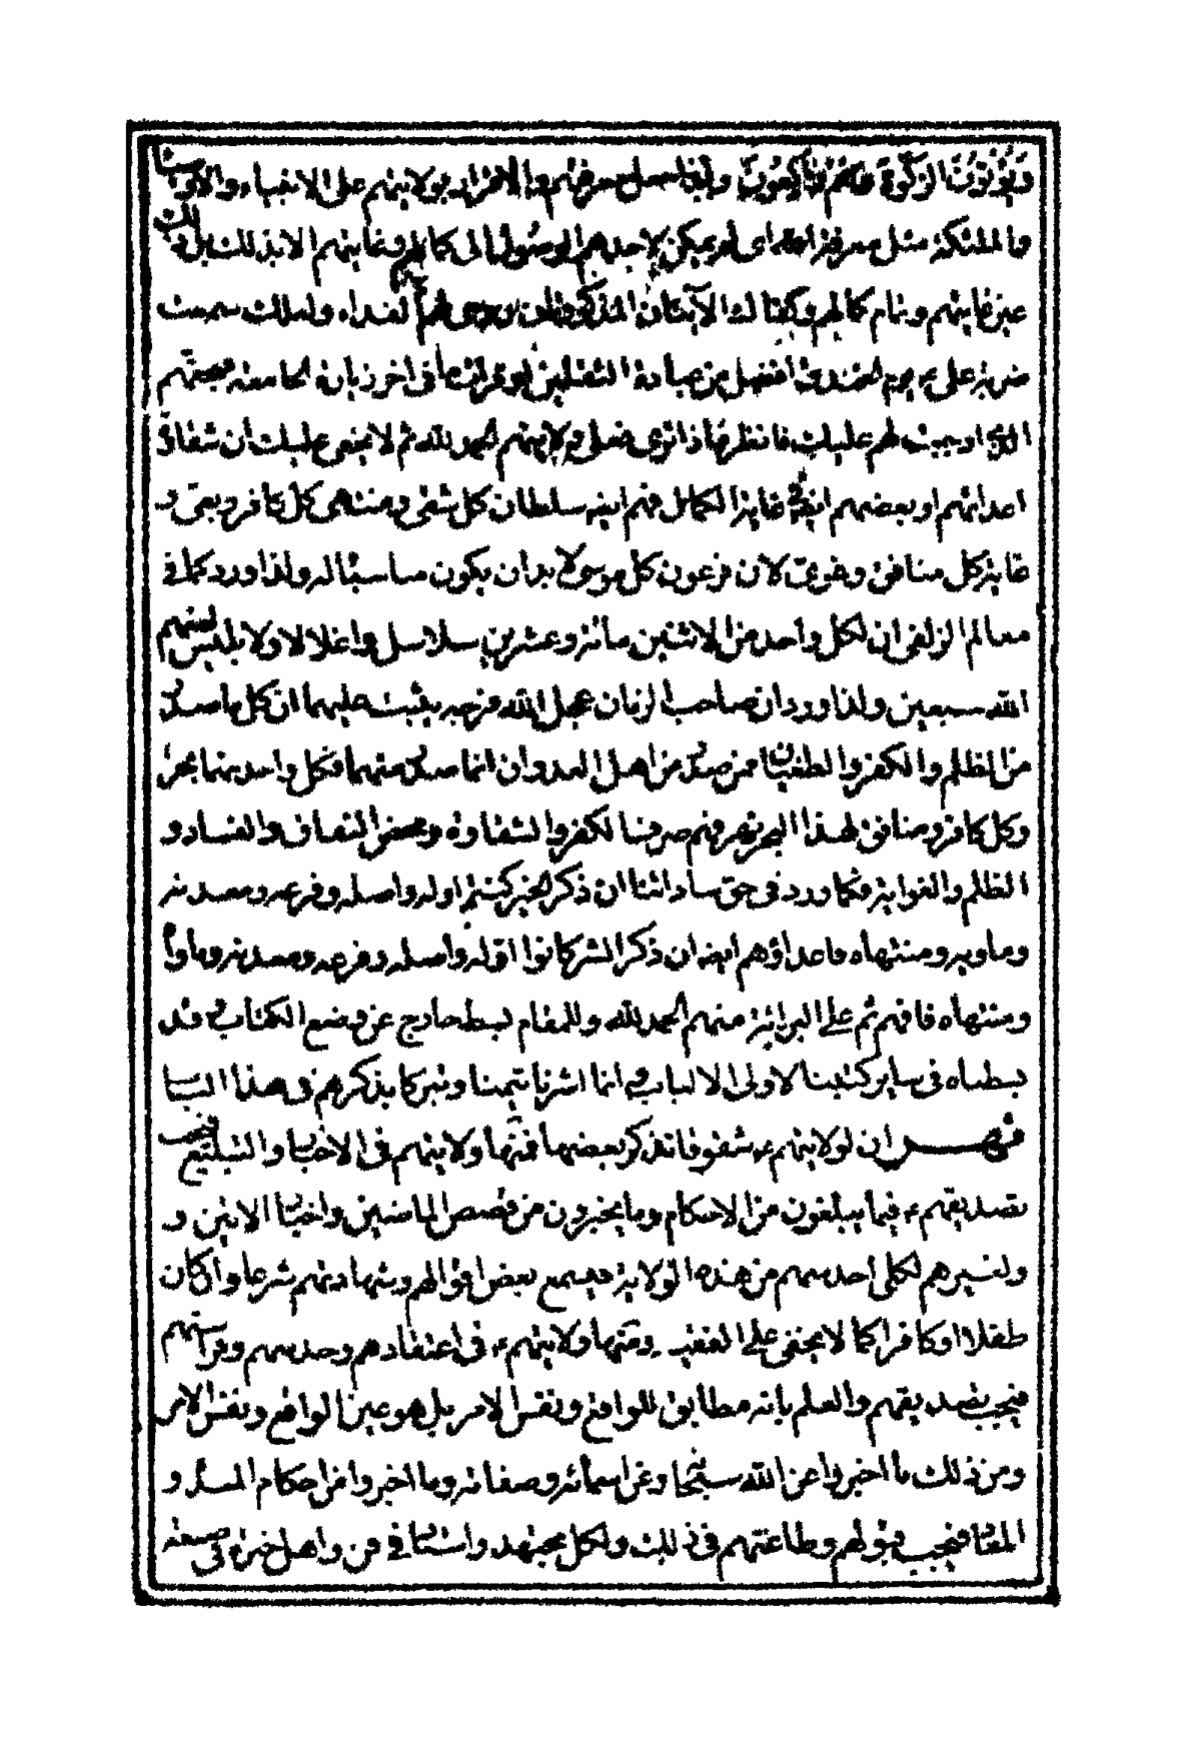 وَيُؤْتُونَ الزَّكٰوةَ وَهُمْ رٰاكِعُونَ بولايتهم على الانبياء والاوصيا
والملئكة مثل معرفة الله اى لم يمكن لاحدهم الوصول الى كمالهم وغايتهم الا بذلك بل ذلك
عين غايتهم وتمام كمالهم وكفينا لك الآيتان المذكورتان روحى لهم الفداء ولعلك سمعت
ضربة على ع يوم الخندق افضل من عبادة الثقلين او قرائتنا فى اخر زيارة الجامعة فبحقهم
الذى اوجبت لهم عليك فانظر ماذا ترى فعلى ولايتهم الحمد لله ثم لا يخفى عليك ان شقاوة
اعدائهم او بعضهم ايضا غاية الكمال فهم ايضا سلطان كل شقى ومنتهى كل كافر وبغى و
غاية كل منافق وغوى لان فرعون كل موسى لا بد ان يكون مناسبا له ولذا ورد كما فى
معالم الزلفى ان لكل واحد من الاثنين مائة وعشرين سلاسل واغلالا ولابليس لعنهم
الله سبعين ولذا ورد ان صاحب الزمان عجل الله فرجه يثبت عليهما ان كل ما صدر
من الظلم والكفر والطغيان ممن صدر من اهل العدوان انما صدر منهما فكل واحد منهما بحر
وكل كافر ومنافق لهذا البحر نهر وهم صرفنا لكفر والشقاوة ومحض النفاق والفساد و
الظلم والغواية فكما ورد فى حق ساداتنا ان ذكر الخير كنتم اوله واصله وفرعه ومعدنه
وماويه ومنتهاه فاعداؤهم ايضا ان ذكر الشر كانوا اوله واصله وفرعه ومعدنه وماواه
ومنتهاه فافهم ثم على البرائة منهم الحمد لله وللمقام بسط خارج عن وضع الكتاب قد
بسطناه فى ساير كتبنا لاولى الالباب انما اشرنا تيمنا وتبركا بذكرهم فى هذا الباب
ثم ان لولايتهم ع شقوقا نذكر بعضها فمنها ولايتهم فى الاخبار والتبليغ فيجب
تصديقهم ع فيما يبلغون من الاحكام وما يخبرون من قصص الماضين واخبار الاتين و
ولغيرهم لكل احد سهم من هذه الولاية فيسمع بعض اقوالهم وشهادتهم شرعا وان كان
طفلا او كافرا كما لا يخفى على الفقيه ومنها ولايتهم ع فى اعتقادهم وحدسهم وفراستهم
فيجب تصديقهم والعلم بانه مطابق للواقع ونفس الامر بل هو عين الواقع ونفس الامر
ومن ذلك ما اخبروا عن الله سبحانه وعن اسمائه وصفاته وما اخبروا من احكام المبدء و
المعاد فيجب قبولهم وطاعتهم فى ذلك ولكل مجتهد واستاد فى فن واهل خبرة فى صنعة